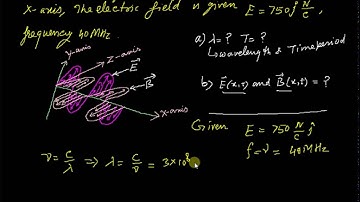 X-axis, The electric field is given E = 750 ĵ N/C,
frequency 40 MHz.
a) λ = ? T = ?
↳ wavelength & Time period
b) E⃗(x,t) and B⃗(x,t) = ?
Y-axis
Z-axis
E⃗
B⃗
X-axis
Given E = 750 N/C ĵ
f = ν = 40 MHz
ν = C/λ ⇒ λ = C/ν = 3×10⁸